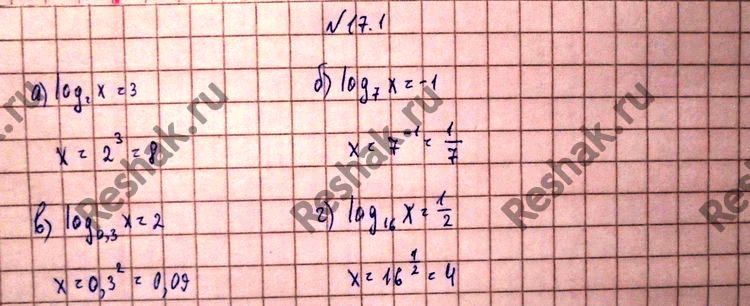 №17.1
а) log₂ x = 3
x = 2³ = 8
б) log₇ x = -1
x = 7⁻¹ = 1/7
в) log₀,₃ x = 2
x = 0,3² = 0,09
г) log₁₆ x = 1/2
x = 16^(1/2) = 4
Reshak.ru
Reshak.ru
Reshak.ru
Reshak.ru